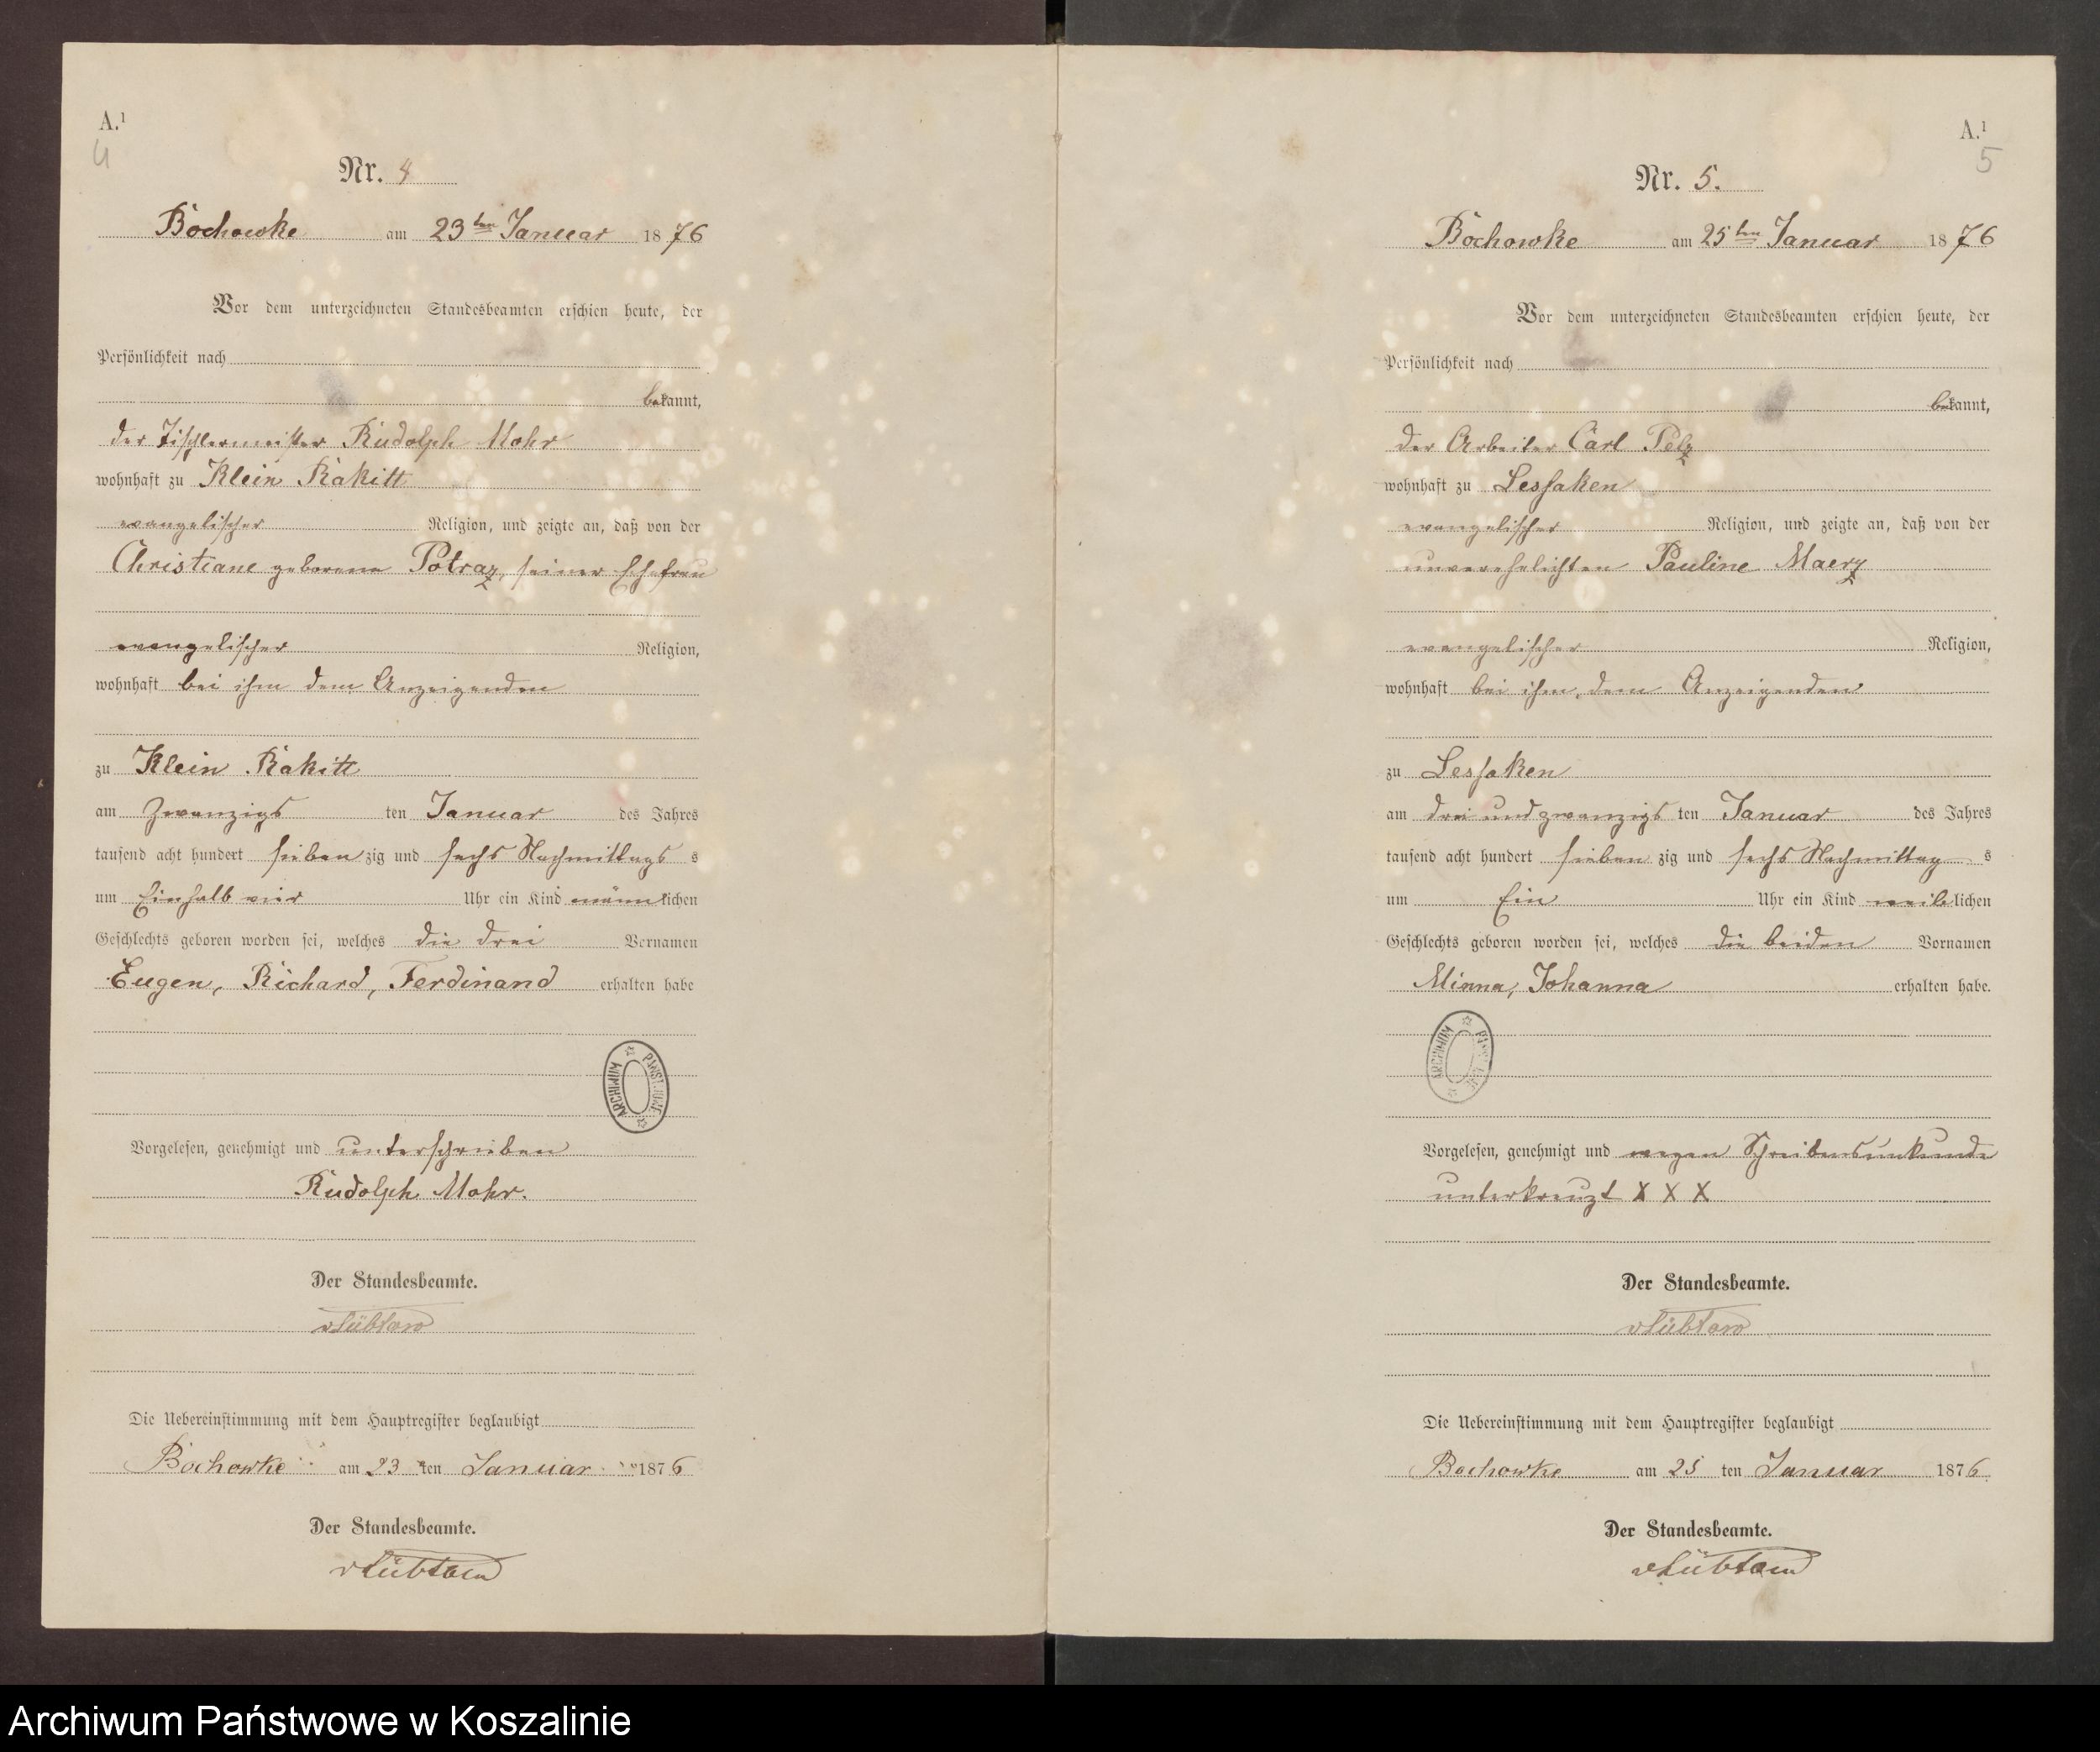 A.¹
4
Nr. 4
Bochowke am 23ten Januar 1876
Vor dem unterzeichneten Standesbeamten erschien heute, der
Persönlichkeit nach
bekannt,
der Tischlermeister Rudolph Mohr
wohnhaft zu Klein Rakitt
evangelischer Religion, und zeigte an, daß von der
Christiane geborene Potraz, seiner Ehefrau
evangelischer Religion,
wohnhaft bei ihm dem Anzeigenden
zu Klein Rakitt
am zwanzigs ten Januar des Jahres
tausend acht hundert sieben zig und sechs Nachmittags s
um Einhalb vier Uhr ein Kind männlichen
Geschlechts geboren worden sei, welches die drei Vornamen
Eugen, Richard, Ferdinand erhalten habe
ARCHIWUM PAŃSTWOWE
Vorgelesen, genehmigt und unterschrieben
Rudolph Mohr.
Der Standesbeamte.
vLübtow
Die Uebereinstimmung mit dem Hauptregister beglaubigt
Bochowke am 23 ten Januar 1876
Der Standesbeamte.
vLübtow
A.¹
5
Nr. 5.
Bochowke am 25ten Januar 1876
Vor dem unterzeichneten Standesbeamten erschien heute, der
Persönlichkeit nach
bekannt,
der Arbeiter Carl Pelz
wohnhaft zu Lessaken
evangelischer Religion, und zeigte an, daß von der
unverehelichten Pauline Maerz
evangelischer Religion,
wohnhaft bei ihm, dem Anzeigenden
zu Lessaken
am drei und zwanzigs ten Januar des Jahres
tausend acht hundert sieben zig und sechs Nachmittag s
um Ein Uhr ein Kind weiblichen
Geschlechts geboren worden sei, welches die beiden Vornamen
Minna, Johanna erhalten habe.
ARCHIWUM
Vorgelesen, genehmigt und wegen Schreibensunkunde
unterkreuzt X X X
Der Standesbeamte.
vLübtow
Die Uebereinstimmung mit dem Hauptregister beglaubigt
Bochowke am 25 ten Januar 1876
Der Standesbeamte.
vLübtow
Archiwum Państwowe w Koszalinie